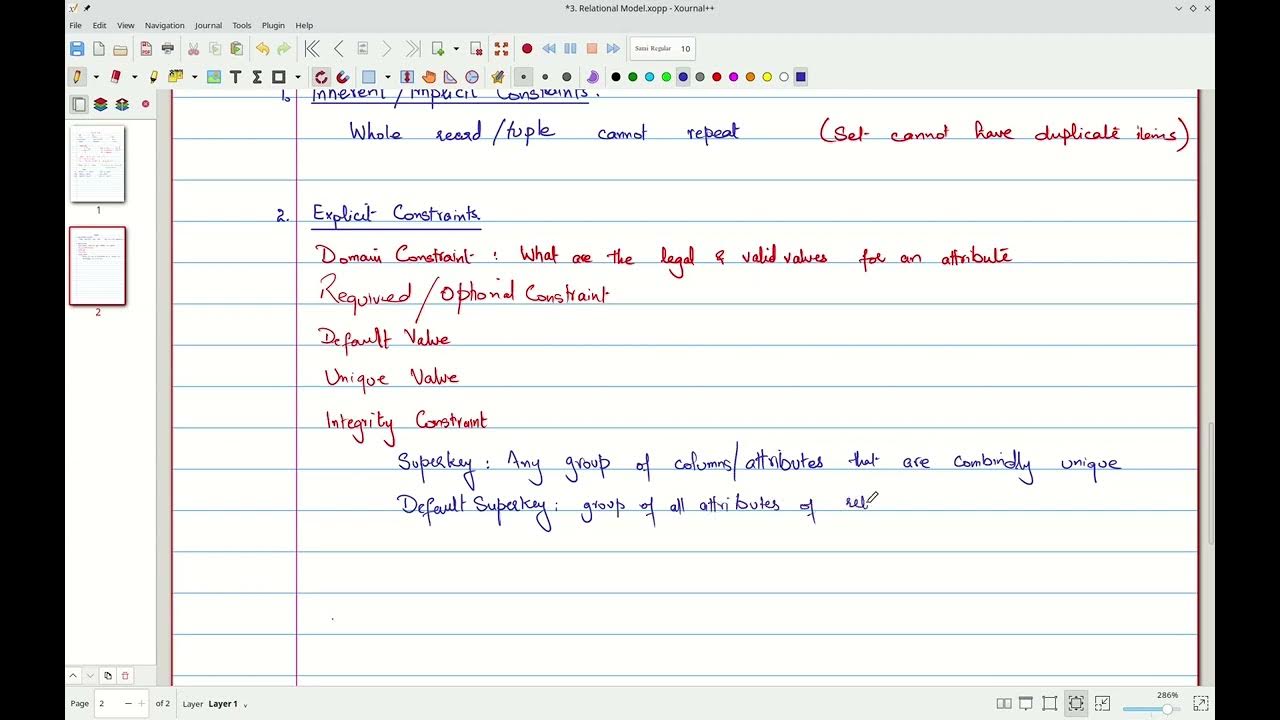 *3. Relational Model.xopp - Xournal++
File Edit View Navigation Journal Tools Plugin Help
Sans Regular 10
1. Inherent/Implicit Constraints.
Whole record/tuple cannot repeat (Set cannot have duplicate items)
2. Explicit Constraints.
Domain Constraint : What are the legal & valid values for an attribute
Required/Optional Constraint
Default Value
Unique Value
Integrity Constraint
Superkey: Any group of columns/attributes that are combindly unique
Default Superkey: group of all attributes of rel
1
2
Page 2 of 2 Layer Layer 1 286%